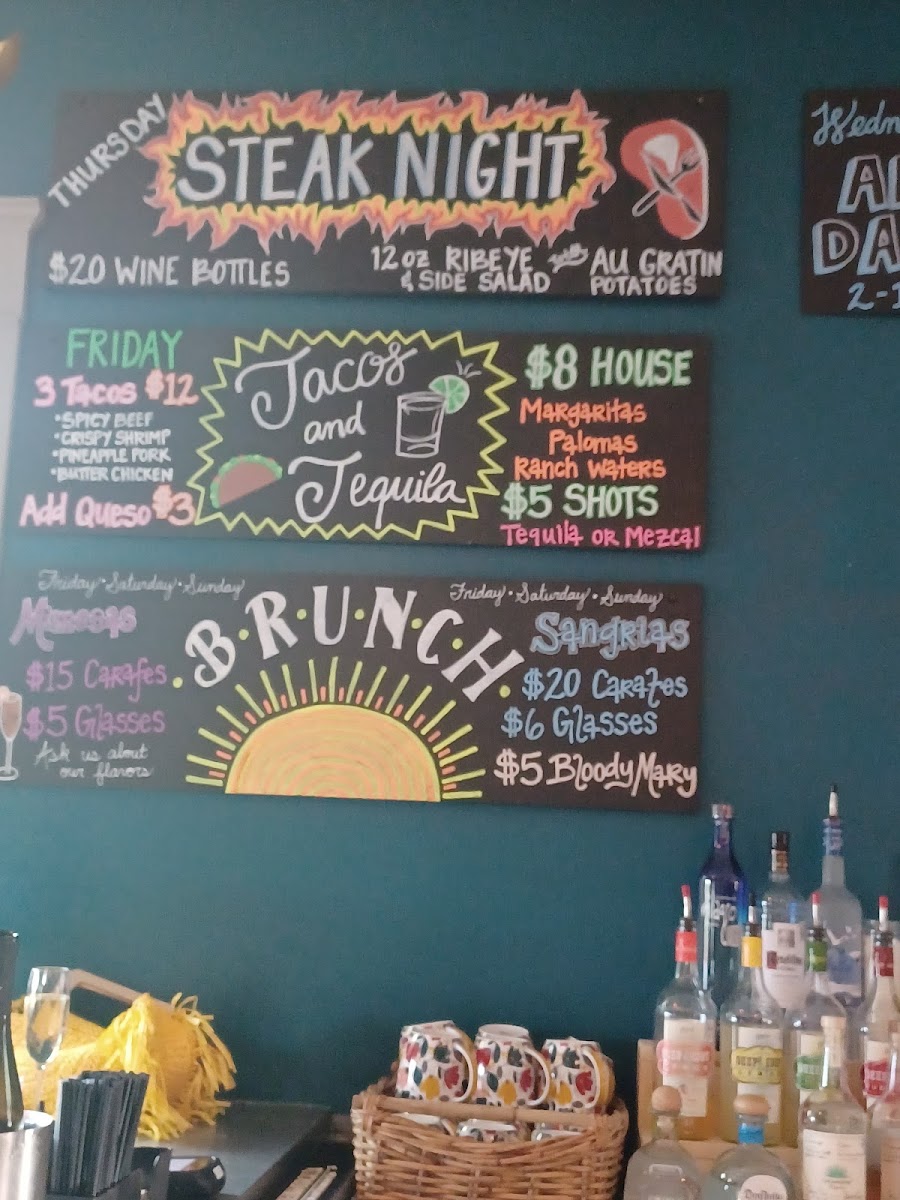 THURSDAY
STEAK NIGHT
$20 WINE BOTTLES
12 oz RIBEYE with AU GRATIN
& SIDE SALAD POTATOES
FRIDAY
3 Tacos $12
•SPICY BEEF
•CRISPY SHRIMP
•PINEAPPLE PORK
•BUTTER CHICKEN
Add Queso $3
Tacos
and
Tequila
$8 HOUSE
Margaritas
Palomas
Ranch Waters
$5 SHOTS
Tequila or Mezcal
Friday • Saturday • Sunday
Mimosas
$15 Carafes
$5 Glasses
Ask us about
our flavors
B•R•U•N•C•H
Friday • Saturday • Sunday
Sangrias
$20 Carafes
$6 Glasses
$5 Bloody Mary
Wedn
DA
2-
DEEP EDDY